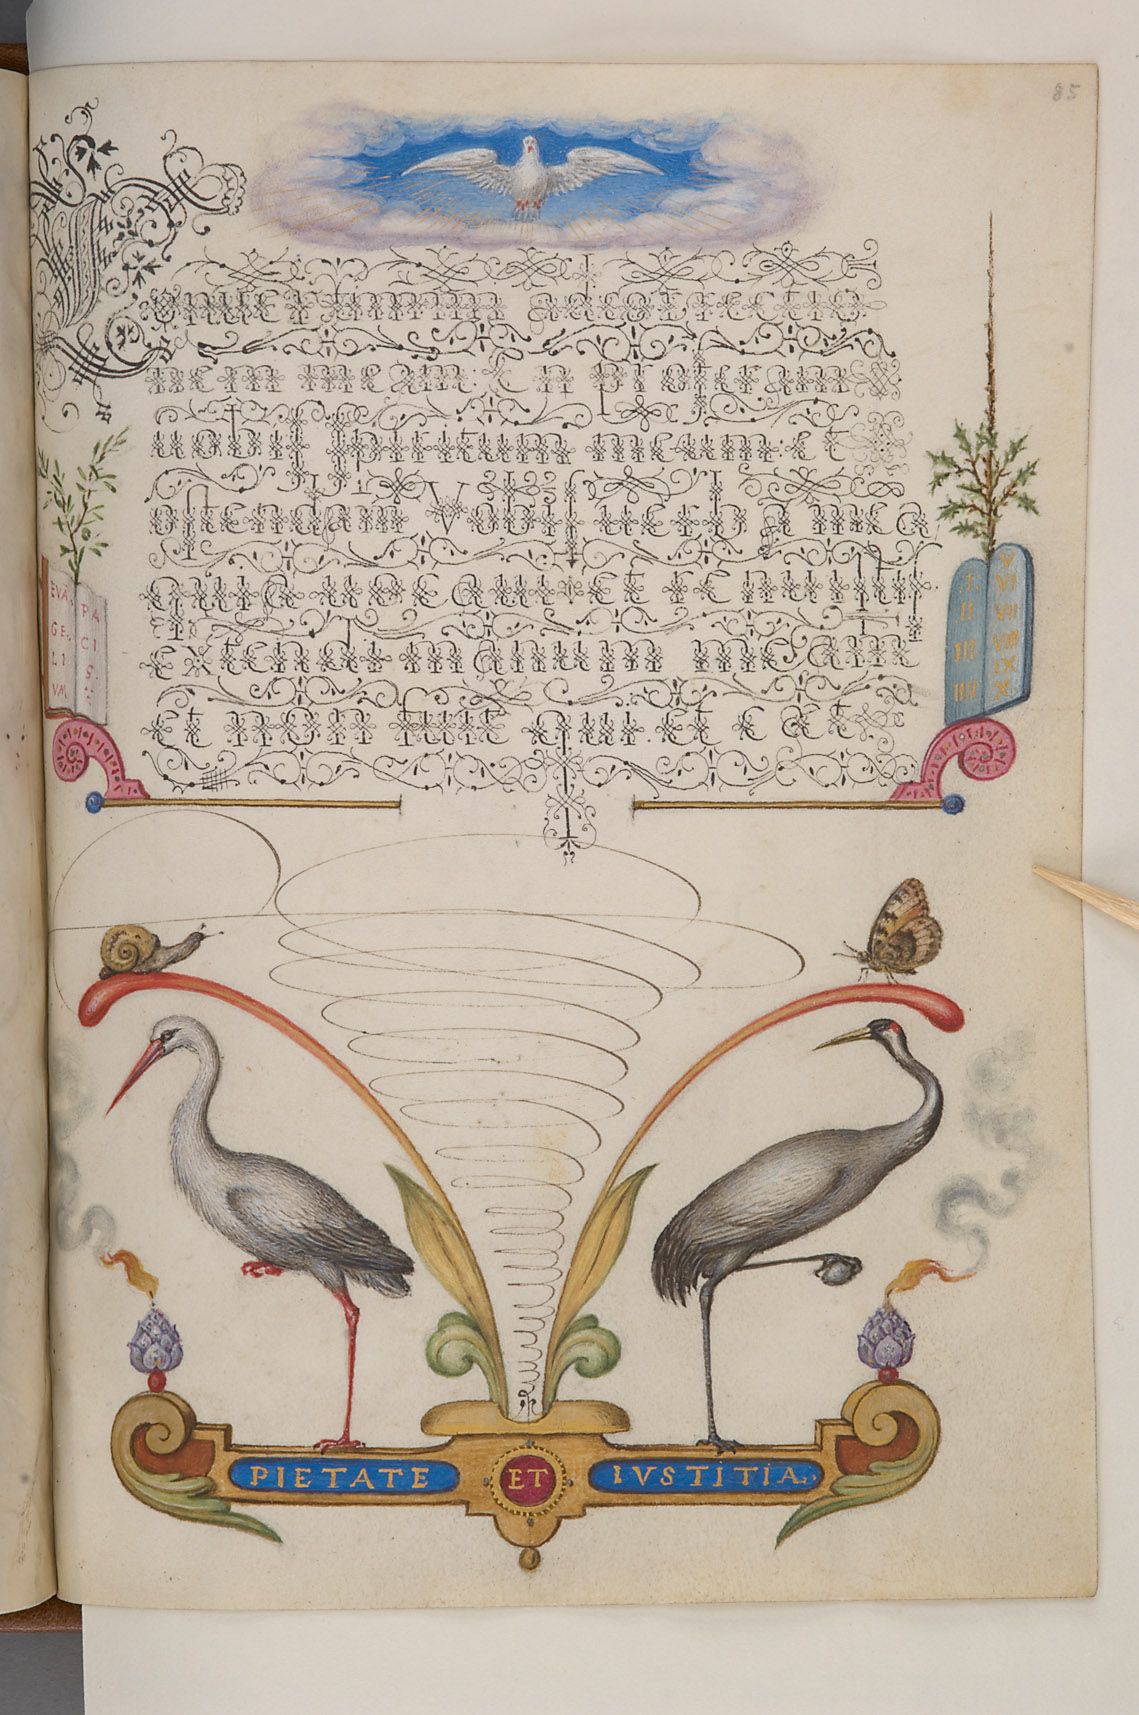 85
Conuertimini ad correctio
nem meam. En proferam
uobis spiritum meum. et
ostendam Vobis uerba mea
Quia uocaui et renuistis
extendi manum meam
Et non fuit qui. Et cet
EVAN PA
GE. CI
LI S.
VM.
I. V
II VI
III VII
IIII VIII
IX
X
PIETATE ET IVSTITIA.